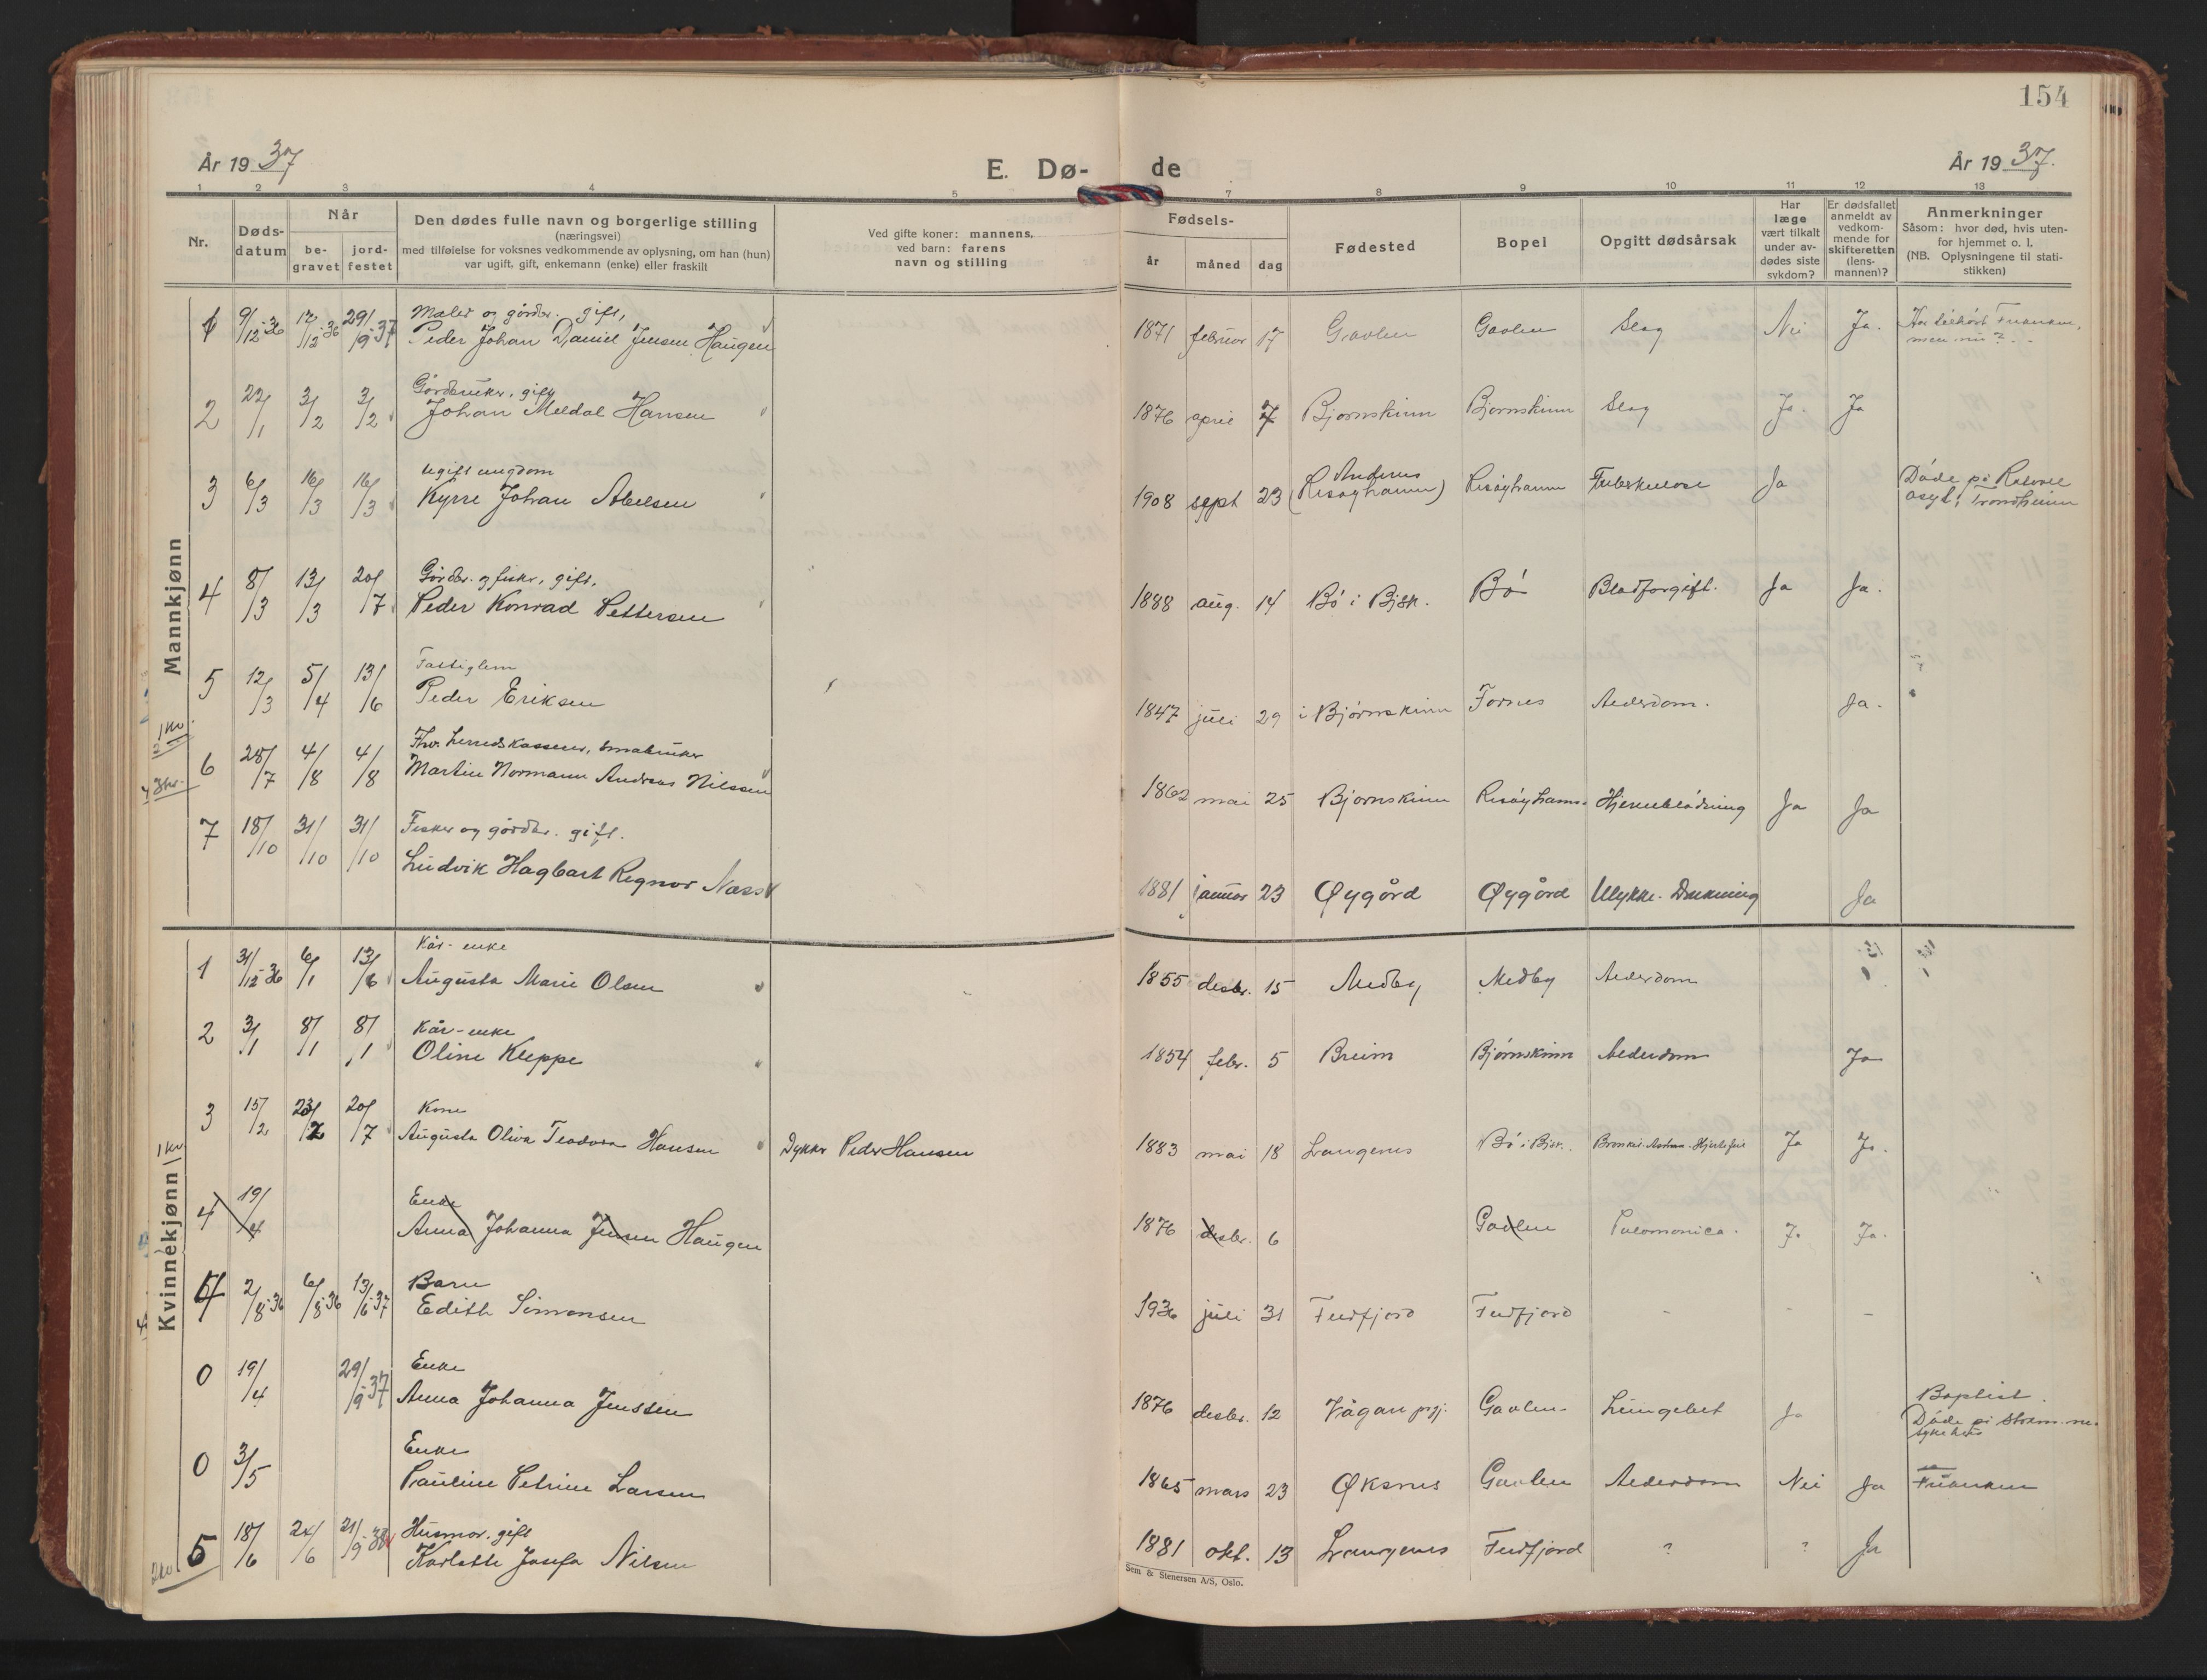 154
År 1937
E. Dø-
de
År 1937.
1 2 3 4 5 7 8 9 10 11 12 13
Nr.
Døds-
datum
Når
be-
gravet
jord-
festet
Den dødes fulle navn og borgerlige stilling
(næringsvei)
med tilføielse for voksnes vedkommende av oplysning, om han (hun)
var ugift, gift, enkemann (enke) eller fraskilt
Ved gifte koner: mannens,
ved barn: farens
navn og stilling
Fødsels-
år måned dag
Fødested
Bopel
Opgitt dødsårsak
Har
læge
vært tilkalt
under av-
dødes siste
sykdom?
Er dødsfallet
anmeldt av
vedkom-
mende for
skifteretten
(lens-
mannen)?
Anmerkninger
Såsom: hvor død, hvis uten-
for hjemmet o. l.
(NB. Oplysningene til stati-
stikken)
Mannkjønn
Maler og gårdbr. gift,
1 9/12-36 12/12-36 29/9-37 Peder Johan Daniel Jensen Haugen 1871 februar 17 Gavlen Gavlen Slag Nei Ja. Har tilhørt Frikirken,
men nu?
Gårdbruker, gift
2 22/1 3/2 3/2 Johan Meldal Hansen 1876 april 7 Bjørnskinn Bjørnskinn Slag Ja. Ja
Ugift ungdom
3 6/3 16/3 16/3 Kyrre Johan Abelsen 1908 sept 23 Andenes
(Risøyhamn) Risøyhamn Tuberkulose Ja Døde på Rotvoll
asyl, Trondheim
Gårdbr. og fisker, gift.
4 8/3 13/3 20/7 Peder Konrad Pettersen 1888 aug. 14 Bø i Bjsk. Bø Blodforgift. Ja Ja.
Fattiglem
5 12/3 5/4 13/6 Peder Eriksen 1847 juli 29 i Bjørnskinn Fornes Alderdom. Ja.
Fhv. herredskasserer, småbruker
6 28/7 4/8 4/8 Martin Normann Andreas Nilssen 1862 mai 25 Bjørnskinn Risøyhamn. Hjerneblødning Ja Ja
Fisker og gårdbr. gift.
7 18/10 31/10 31/10 Ludvik Hagbart Regnor Næss 1881 januar 23 Øygård Øygård Ulykke. Drukning Ja
Kvinnekjønn
Kår-enke
1 31/12-36 6/1 13/6 Augusta Marie Olsen 1855 desbr. 15 Medby Medby Alderdom
Kår-enke
2 3/1 8/1 8/1 Oline Kleppe 1854 febr. 5 Breim Bjørnskinn Alderdom Ja
Kone
3 15/2 23/2 20/7 Augusta Oliva Teodora Hansen Dykker Peder Hansen 1883 mai 18 Langenes Bø i Bjsk. Bronkit. Astma. Hjertefeil Ja Ja.
Enke
4 19/4 Anna Johanna Jensen Haugen 1876 desbr. 6 Gavlen Ja Ja.
Barn
4 2/8-36 6/8-36 13/6-37 Edith Simonsen 1936 juli 31 Fiufjord Fiufjord - - -
Enke
0 19/4 29/9-37 Anna Johanna Jenssen 1876 desbr. 12 Vågan prgj. Gavlen Lungebet Ja Baptist.
Døde på Stokm.-nes
sykehus
Enke
0 3/5 Pauline Petrine Larsen 1865 mars 23 Øksnes Gavlen Alderdom Nei Ja Frikirken
Husmor, gift
5 18/6 24/6 21/9-38 Karlotte Josefa Nilsen 1881 okt. 13 Langenes Fiufjord ? ? Ja
Sem & Stenersen A/S, Oslo.